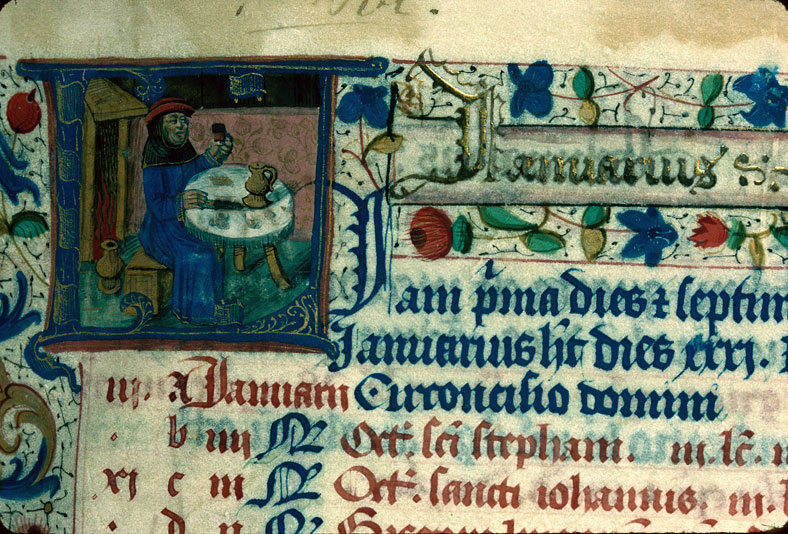 Januarius
Jani p̄ma dies ⁊ septim
Januarius h̄t dies xxxi.
iij. A Januarij Circoncisio domini
b iiij Nꝛ Oct̄. sc̄i stephani. iij. lc̄.
xj c iij Nꝛ Oct̄. sancti iohannis. iij. l
d ij Nꝛ